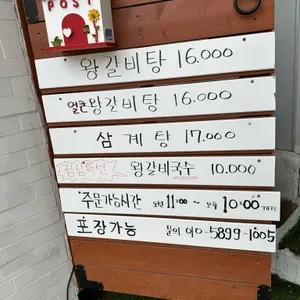 POST
왕갈비탕 16.000
얼큰왕갈비탕 16.000
삼계탕 17.000
점심특선 왕갈비국수 10.000
주문가능시간 오전 11:00 ~ 오후 10:00까지
포장가능 문의 010-5899-1005